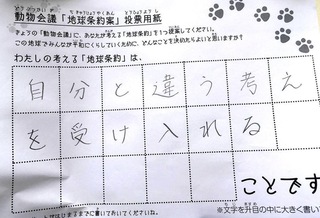 動物会議「地球条約案」投票用紙
きょうの「動物会議」に、あなたが考える「地球条約」を1つ提案してください。
この地球でみんなが平和にくらしていくために、どんなことを決めたらよいと思いますか?
わたしの考える「地球条約」は、
自分と違う考え
を受け入れる
ことです
※文字を升目の中に大きく書い